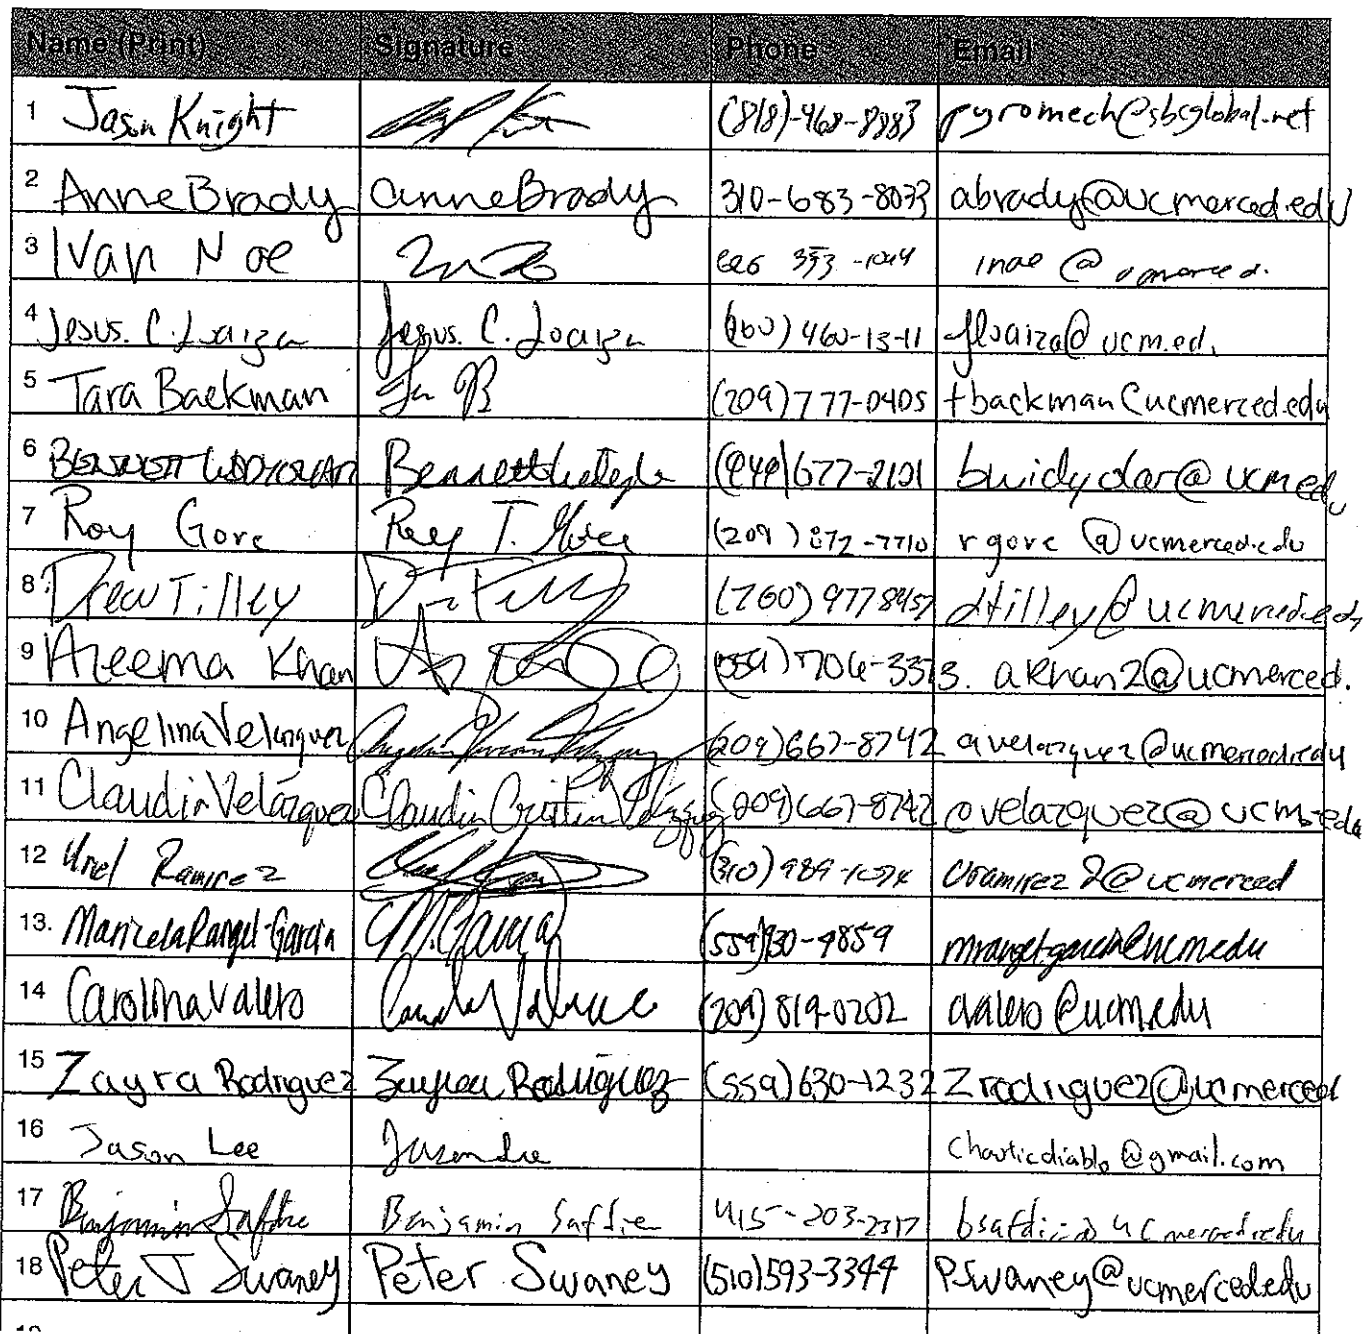 Name (Print) Signature Phone Email
1 Jason Knight (818)-468-8983 pyromech@sbcglobal.net
2 Anne Brady anne Brady 310-683-8033 abrady@ucmerced.edu
3 Ivan Noe inoe @
4 Jesus. C. Loaiza Jesus. C. Loaiza (760) 460-13-11 jloaiza@ucm.ed.
5 Tara Backman (209)777-0405 tbackman@ucmerced.edu
6 Bennett (949)677-2121 bwidyolar@ucmedu
7 Roy Gore Roy T. Gore (209) 872-7710 rgore @ucmerced.edu
8 Drew Tilley (760) 9778457 dtilley@ucmerced.edu
9 Aleema Khan (559) 706-3313. akhan2@ucmerced.
10 Angelina Velazquez (209)667-8742 avelazquez@ucmerced.edu
11 Claudia Velazquez Claudia Cristina Velazquez (209)667-8742 cvelazquez@ucm.edu
12 Uriel Ramirez (310) 989- uramirez2@ucmerced
13. Maricela Rangel-Garcia M. Garcia (559) 30-9859 mrangel-garcia@ucm.edu
14 Carolina Valero (209) 819-0202 cvalero@ucm.edu
15 Zayra Rodriguez Zayra Rodriguez (559)630-1232 Zrodriguez@ucmerced
16 Jason Lee Jason Lee chaoticdiablo@gmail.com
17 Benjamin Safdie Benjamin Safdie 415-203-2317 bsafdie@ucmerced.edu
18 Peter J Swaney Peter Swaney (510)593-3344 Pswaney@ucmerced.edu